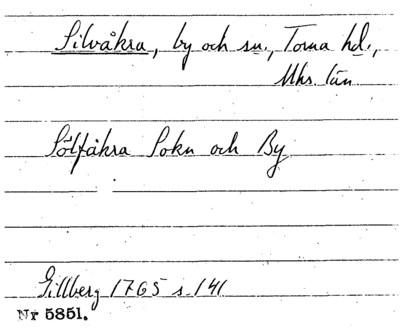 Silvåkra, by och sn., Torna hd.,
Mhs. län
Sölfåkra Sokn och By
Gillberg 1765 s. 141
Nr 5851.